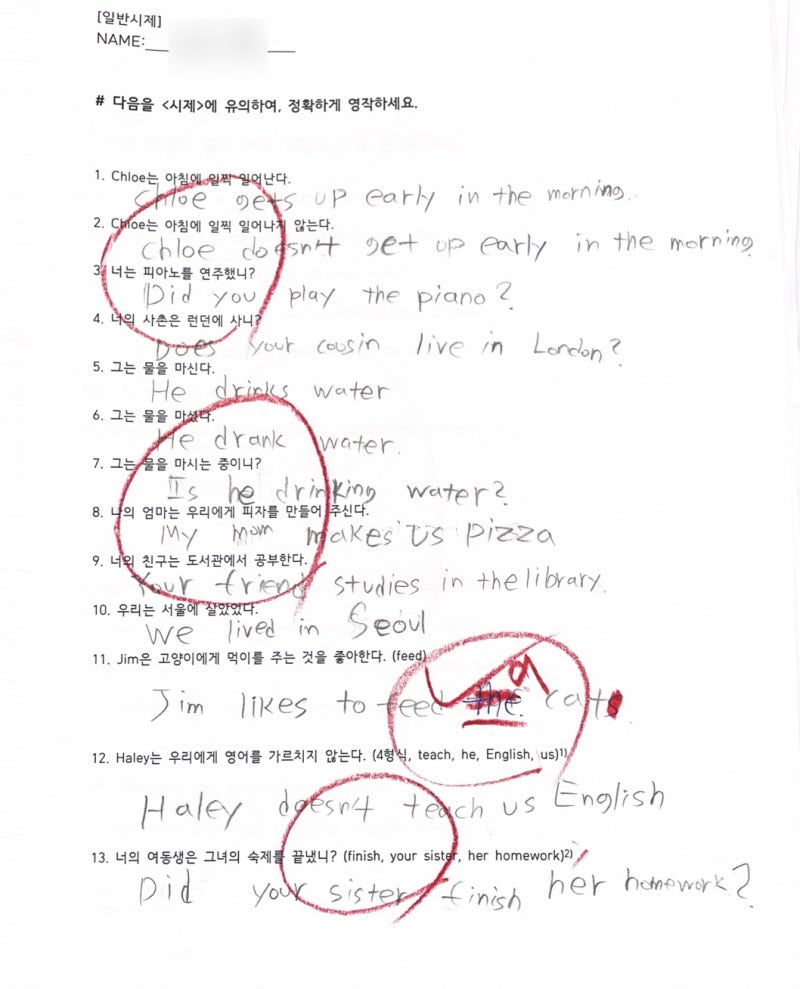 [일반시제]
NAME:
# 다음을 <시제>에 유의하여, 정확하게 영작하세요.
1. Chloe는 아침에 일찍 일어난다.
Chloe gets up early in the morning.
2. Chloe는 아침에 일찍 일어나지 않는다.
Chloe doesn't get up early in the morning
3. 너는 피아노를 연주했니?
Did you play the piano?
4. 너의 사촌은 런던에 사니?
Does your cousin live in London?
5. 그는 물을 마신다.
He drinks water
6. 그는 물을 마셨다.
He drank water.
7. 그는 물을 마시는 중이니?
Is he drinking water?
8. 나의 엄마는 우리에게 피자를 만들어 주신다.
My mom makes us pizza
9. 너의 친구는 도서관에서 공부한다.
Your friend studies in the library.
10. 우리는 서울에 살았었다.
We lived in Seoul
11. Jim은 고양이에게 먹이를 주는 것을 좋아한다. (feed)
a
Jim likes to feed the cats
12. Haley는 우리에게 영어를 가르치지 않는다. (4형식, teach, he, English, us)1)
Haley doesn't teach us English
13. 너의 여동생은 그녀의 숙제를 끝냈니? (finish, your sister, her homework)2)
Did your sister finish her homework?